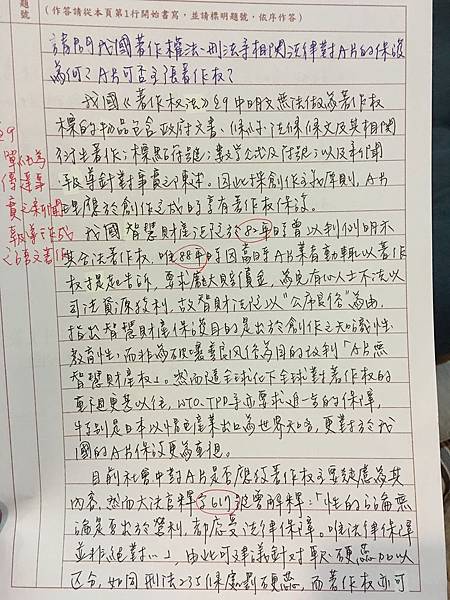 題號
(作答請從本頁第1行開始書寫,並請標明題號,依序作答)
請問我國著作權法、刑法等相關法律對A片的保護
為何?A片可否主張著作權?
我國《著作權法》§9中明文無法做為著作權
標的物品包含政府文書、條例、法條條文及其相關
衍生著作;標點符號;數學公式及符號;以及新聞
報導針對事實之陳述。因此採創作主義原則,A片
理應於創作完成時享有著作權保護。
我國智慧財產法院於82年時曾以判例明示
無法著作權,唯88年時因當時A片業者動輒以著作
權才提起告訴,要求龐大賠償金,為免有心人士不法以
司法資源獲利,故智財法院以"公序良俗"為由,
指出智慧財產保護目的是出於創作之知識性、
教育性,而非為破壞善良風俗為目的故判「A片無
智慧財產權」。然而隨全球化下全球對著作權的
重視更甚以往,WTO、TPP等亦要求進一步的保障,
特別是日本以情色產業出口為世界知名,更對於我
國的A片保護更為重視。
目前社會中對A片是否應給著作權主要疑慮為其
內容,然而大法官釋字617號曾解釋:「性的言論無
論是否出於營利,都應受法律保障。唯法律保障
並非絕對…」,由此可建議針對軟、硬蕊加以
區分,如因刑法235條處罰硬蕊,而著作權亦可
§9
單純為
傳達事
實之新聞
報導所作成
之語文著作